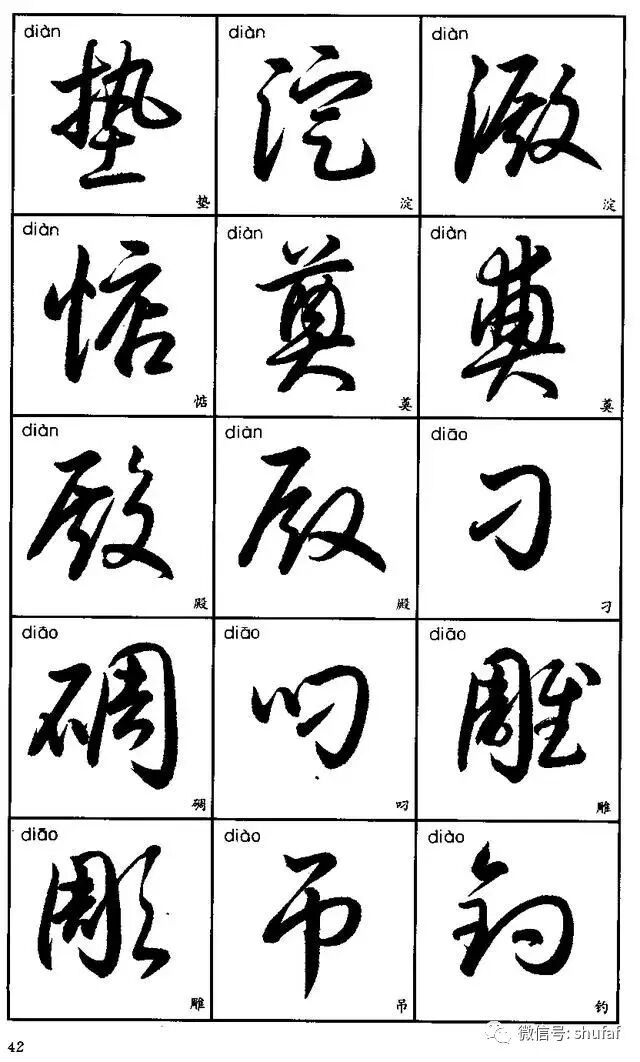 diàn diàn diàn
垫 淀 澱
垫 淀 淀
diàn diàn diàn
惦 奠 奠
惦 奠 奠
diàn diàn diāo
殿 殿 刁
殿 殿 刁
diāo diāo diāo
碉 叼 雕
碉 叼 雕
diāo diào diào
彫 吊 钓
雕 吊 钓
42
微信号: shufaf